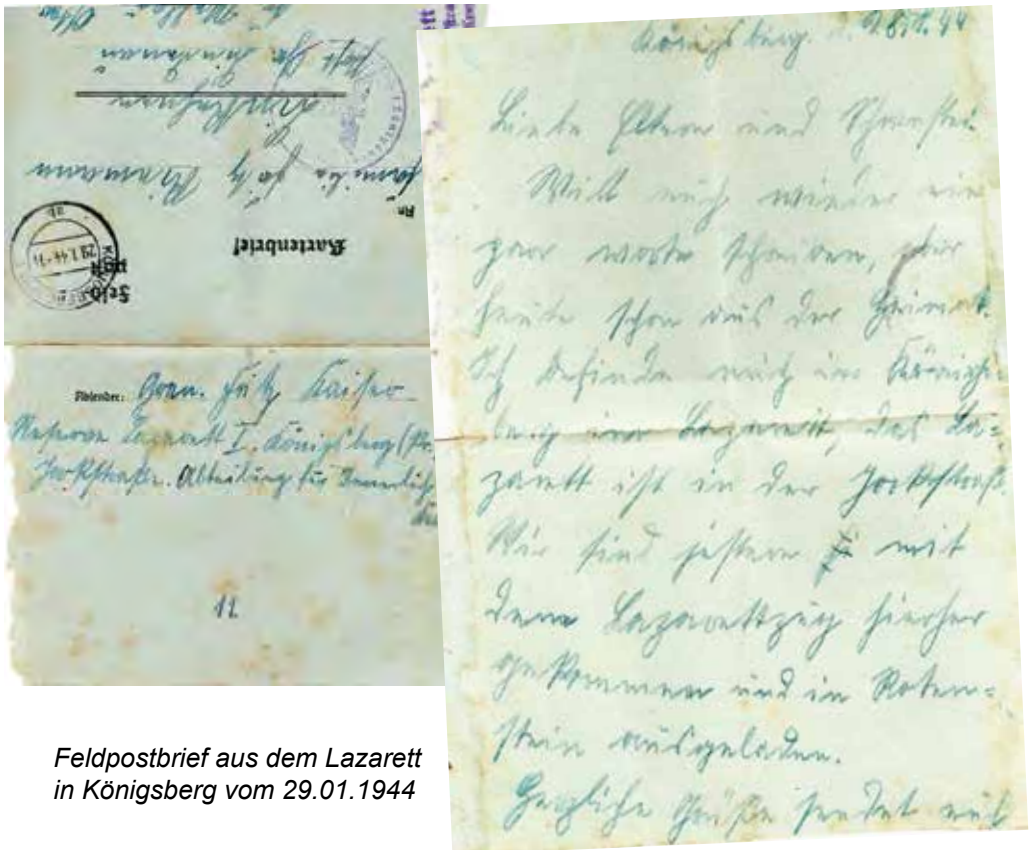 Feldpost
Kartenbrief
An
Familie Fritz
Post Gr. Lindenau
KÖNIGSBERG
29.1.44
Absender: Gren. Fritz Kaiser
Reserve Lazarett I. Königsberg (Pr.
Jorkstraße. Abteilung für Innerliche
11
Königsberg. d.
Liebe Eltern und Schwester
Will euch wieder ein
paar worte schreiben,
heute schon aus der Heimat.
Ich befinde mich in Königs-
berg im Lazarett, das La=
zarett ist in der Jorkstraß.
Wir sind jestern mit
dem Lazarettzug hierher
gekommen und in Roten=
stein ausgeladen.
Herzliche Grüße sendet euch
Feldpostbrief aus dem Lazarett
in Königsberg vom 29.01.1944